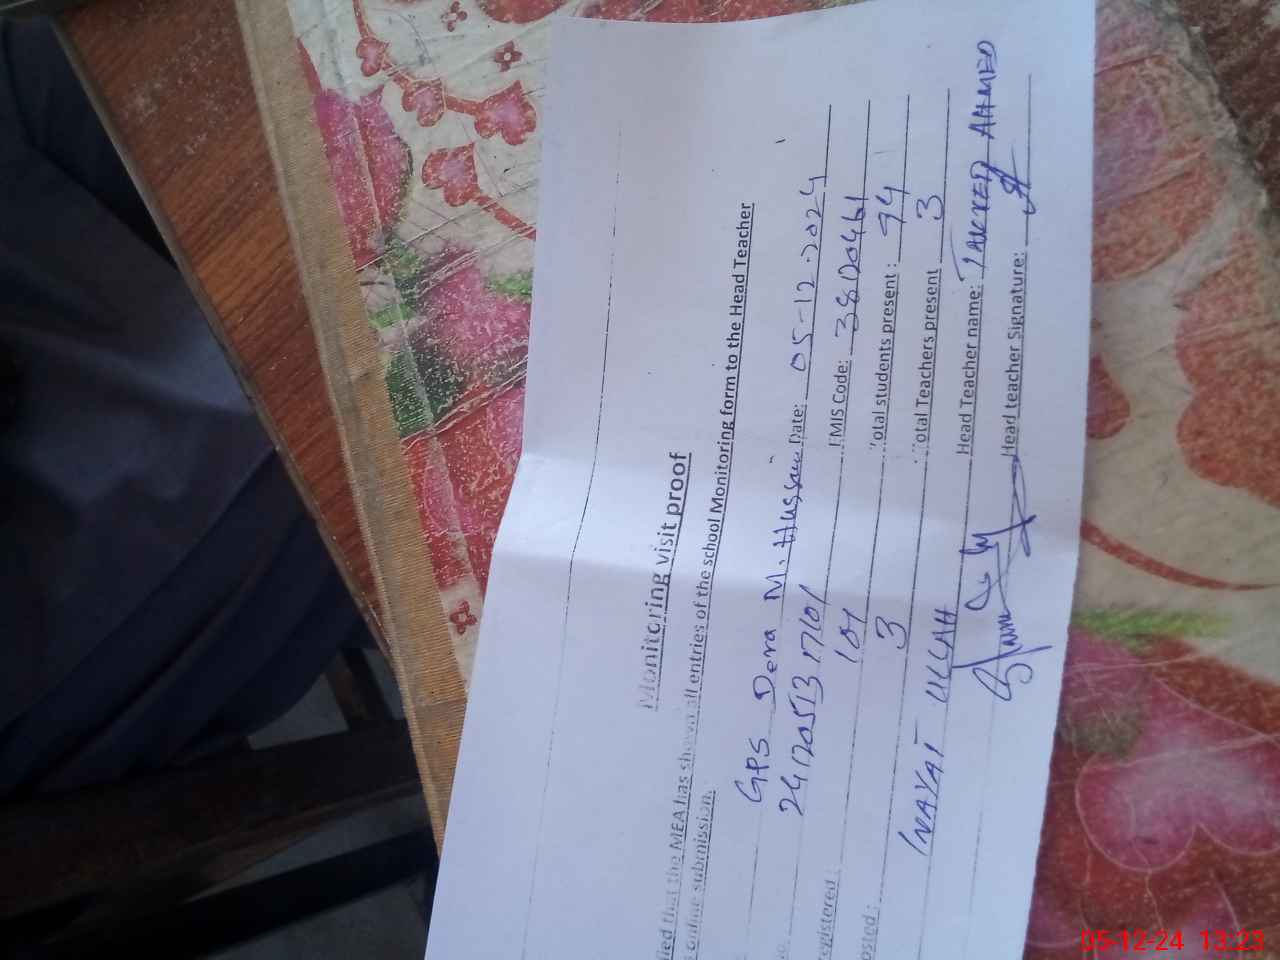 Monitoring visit proof
fied that the MEA has shown all entries of the school Monitoring form to the Head Teacher
online submission.
GPS Dera M. Hussain Date: 05-12-2024
EMIS Code: 38120461
egistered: 101 Total students present: 94
osted: 3 Total Teachers present 3
INAYAT ULLAH Head Teacher name: AHMED
Head teacher Signature:
05-12-24 13:23